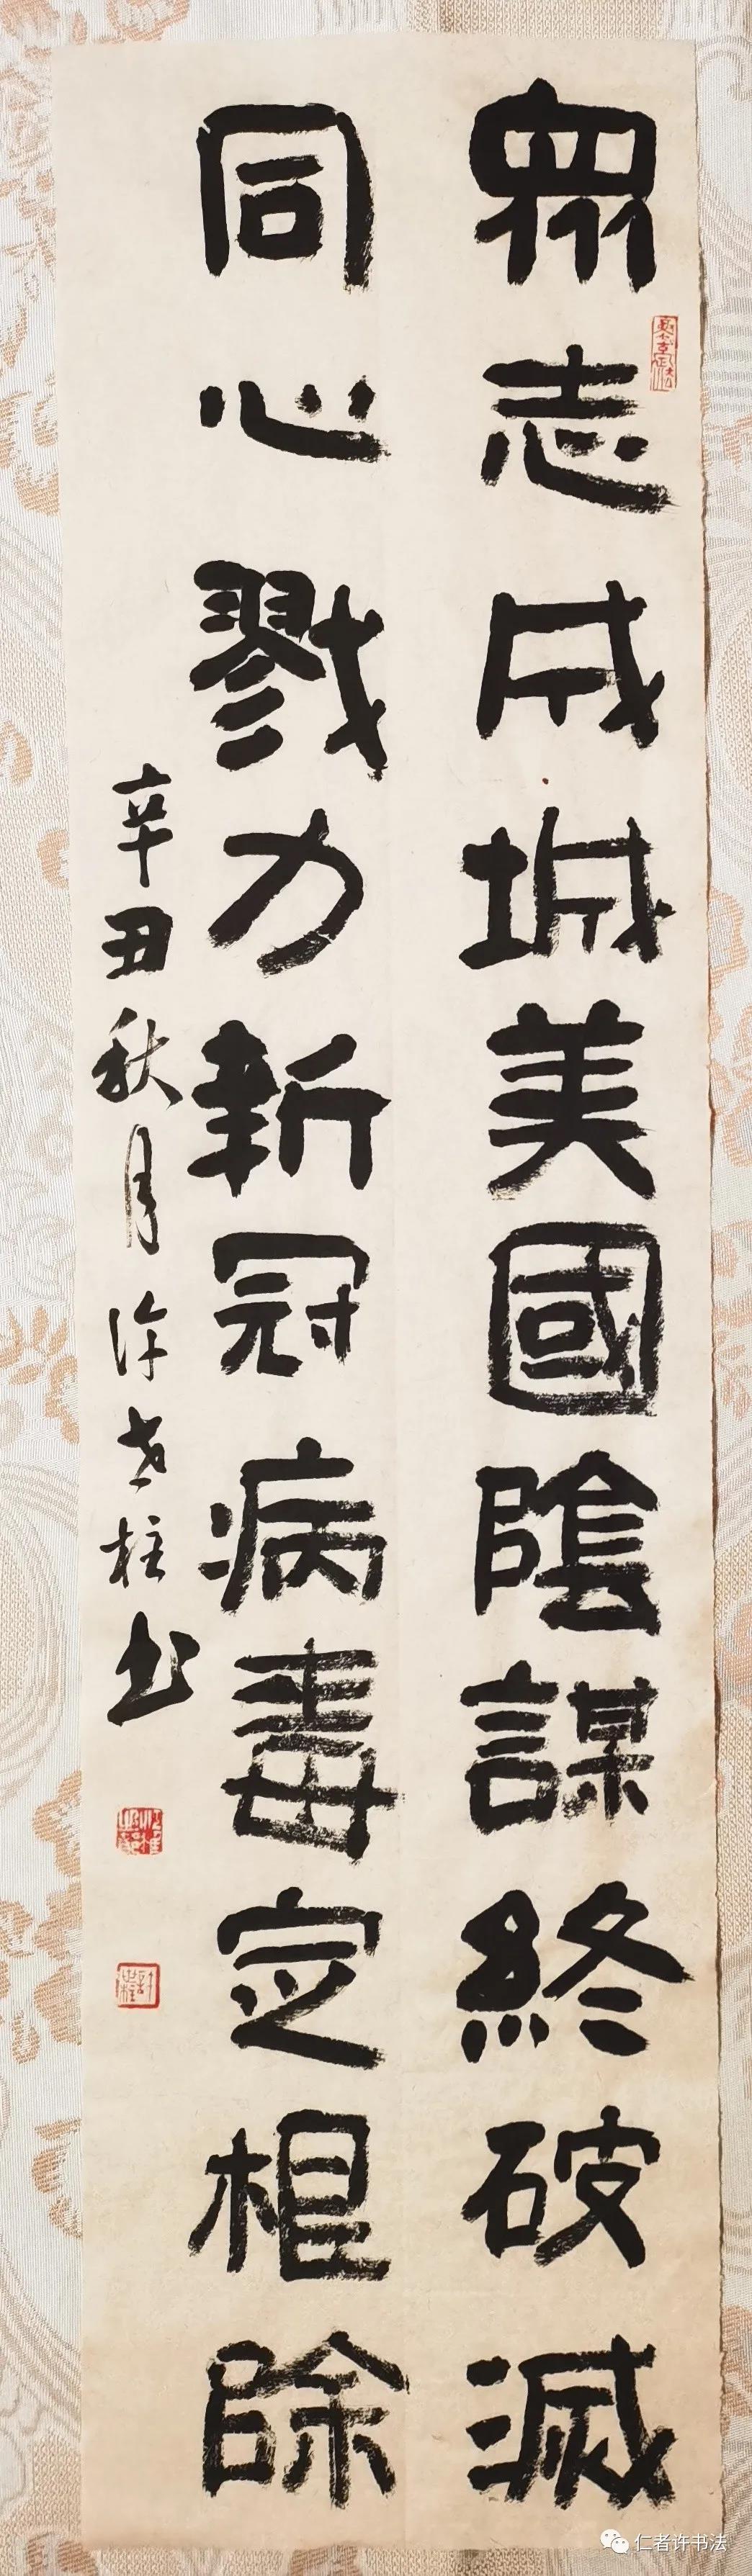 眾志成城美國陰謀終破滅
同心戮力新冠病毒定根除
辛丑秋月许世柱书
仁者许书法